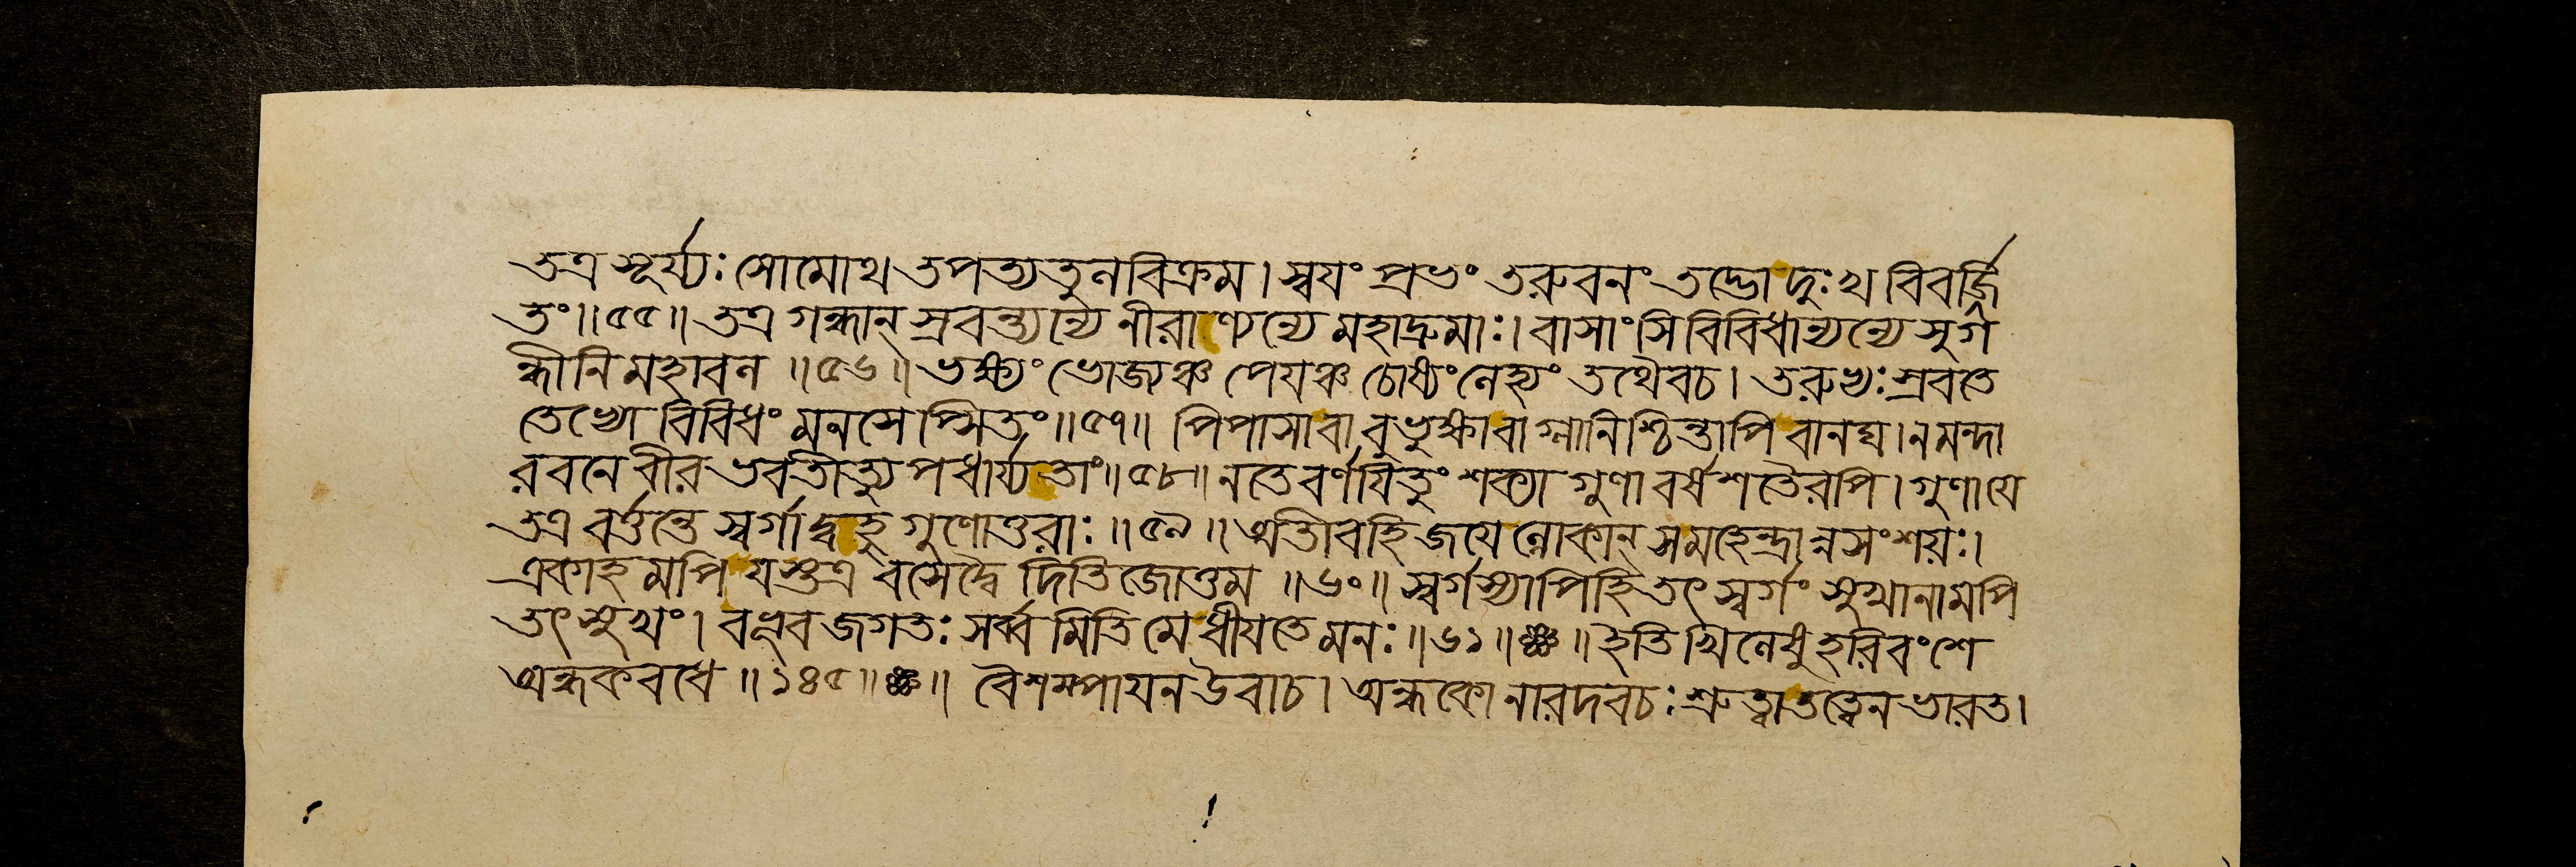 তত্র সূর্য্যঃ সোমোথ তপত্যতুনবিক্রম। স্বযং প্রভং তরুবনং তদ্ভো দুঃখ বিবর্জ্জি
তং॥৫৫॥ তত্র গন্ধান্ স্রবন্ত্যন্যে নীরাণ্যন্যে মহাদ্রুমাঃ। বাসাংসি বিবিধান্যন্যে সুগ
ন্ধীনি মহাবন ॥৫৬॥ ভক্ষ্যং ভোজ্যঞ্চ পেযঞ্চ চোষ্যং নেহ্যং তথৈবচ। তরুভ্যঃ স্রবতে
তেভ্যো বিবিধং মনসেপ্সিতং॥৫৭॥ পিপাসাবা বুভুক্ষাবা গ্লানিশ্চিন্তাপি বানঘ। নমন্দা
রবনে বীর ভবতীত্যুপধার্য্যতাং॥৫৮॥ নতে বর্ণযিতুং শক্যা গুণা বর্ষশতৈরপি। গুণাযে
তত্র বর্ত্তন্তে স্বর্গাদ্বহু গুণোত্তরাঃ॥৫৯॥ অতীবহি জযেল্লোকান্ সমহেন্দ্রান্নসংশয়ঃ।
একাহমপি যস্তত্র বসেদ্বৈ দিতিজোত্তম ॥৬০॥ স্বর্গস্যাপিহি তৎ স্বর্গং সুখানামপি
তৎ সুখং। বভূব জগতঃ সর্ব্বমিতি মে ধীযতে মনঃ॥৬১॥ঞ্ছ॥ ইতি খিলেষু হরিবংশে
অন্ধকবধে॥১৪৫॥ঞ্ছ॥ বৈশম্পাযন উবাচ। অন্ধকো নারদবচঃ শ্রুত্বা তত্ত্বেন ভারত।